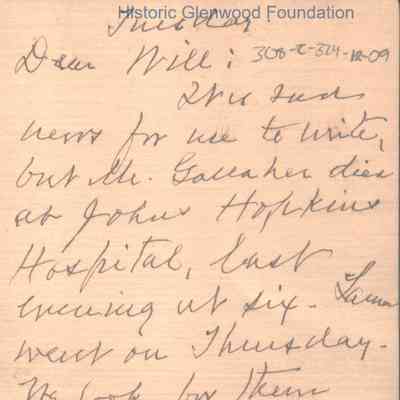 Historic Glenwood Foundation
Tuesday.
Dear Will:
308-C-324-12-09
It is sad
news for me to write,
but Mr. Gallaher died
at Johns Hopkins
Hospital, last
evening at six.
went on Thursday.
We look for them